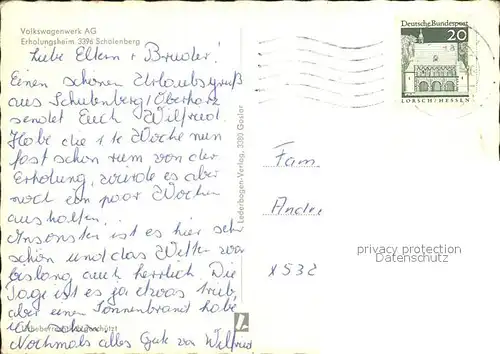 Volkswagenwerk AG
Erholungsheim 3396 Schulenberg
Liebe Eltern + Bruder!
Einen schönen Urlaubsgruß
aus Schulenberg/Oberharz
sendet Euch Wilfried.
Habe die 1te Woche nun
fast schon rum von der
Erholung, würde es aber
noch ein paar Wochen
aushalten.
Ansonsten ist es hier sehr
schön und das Wetter war
bislang auch herrlich. Die
Tage ist es ja etwas trüb,
aber einen Sonnenbrand habe
ich schon
Urheberrechtlich geschützt
Nochmals alles Gute von Wilfried
Lederbogen-Verlag, 3380 Goslar
Deutsche Bundespost
20
LORSCH/HESSEN
Fam.
Andre
privacy protection
Datenschutz
X532